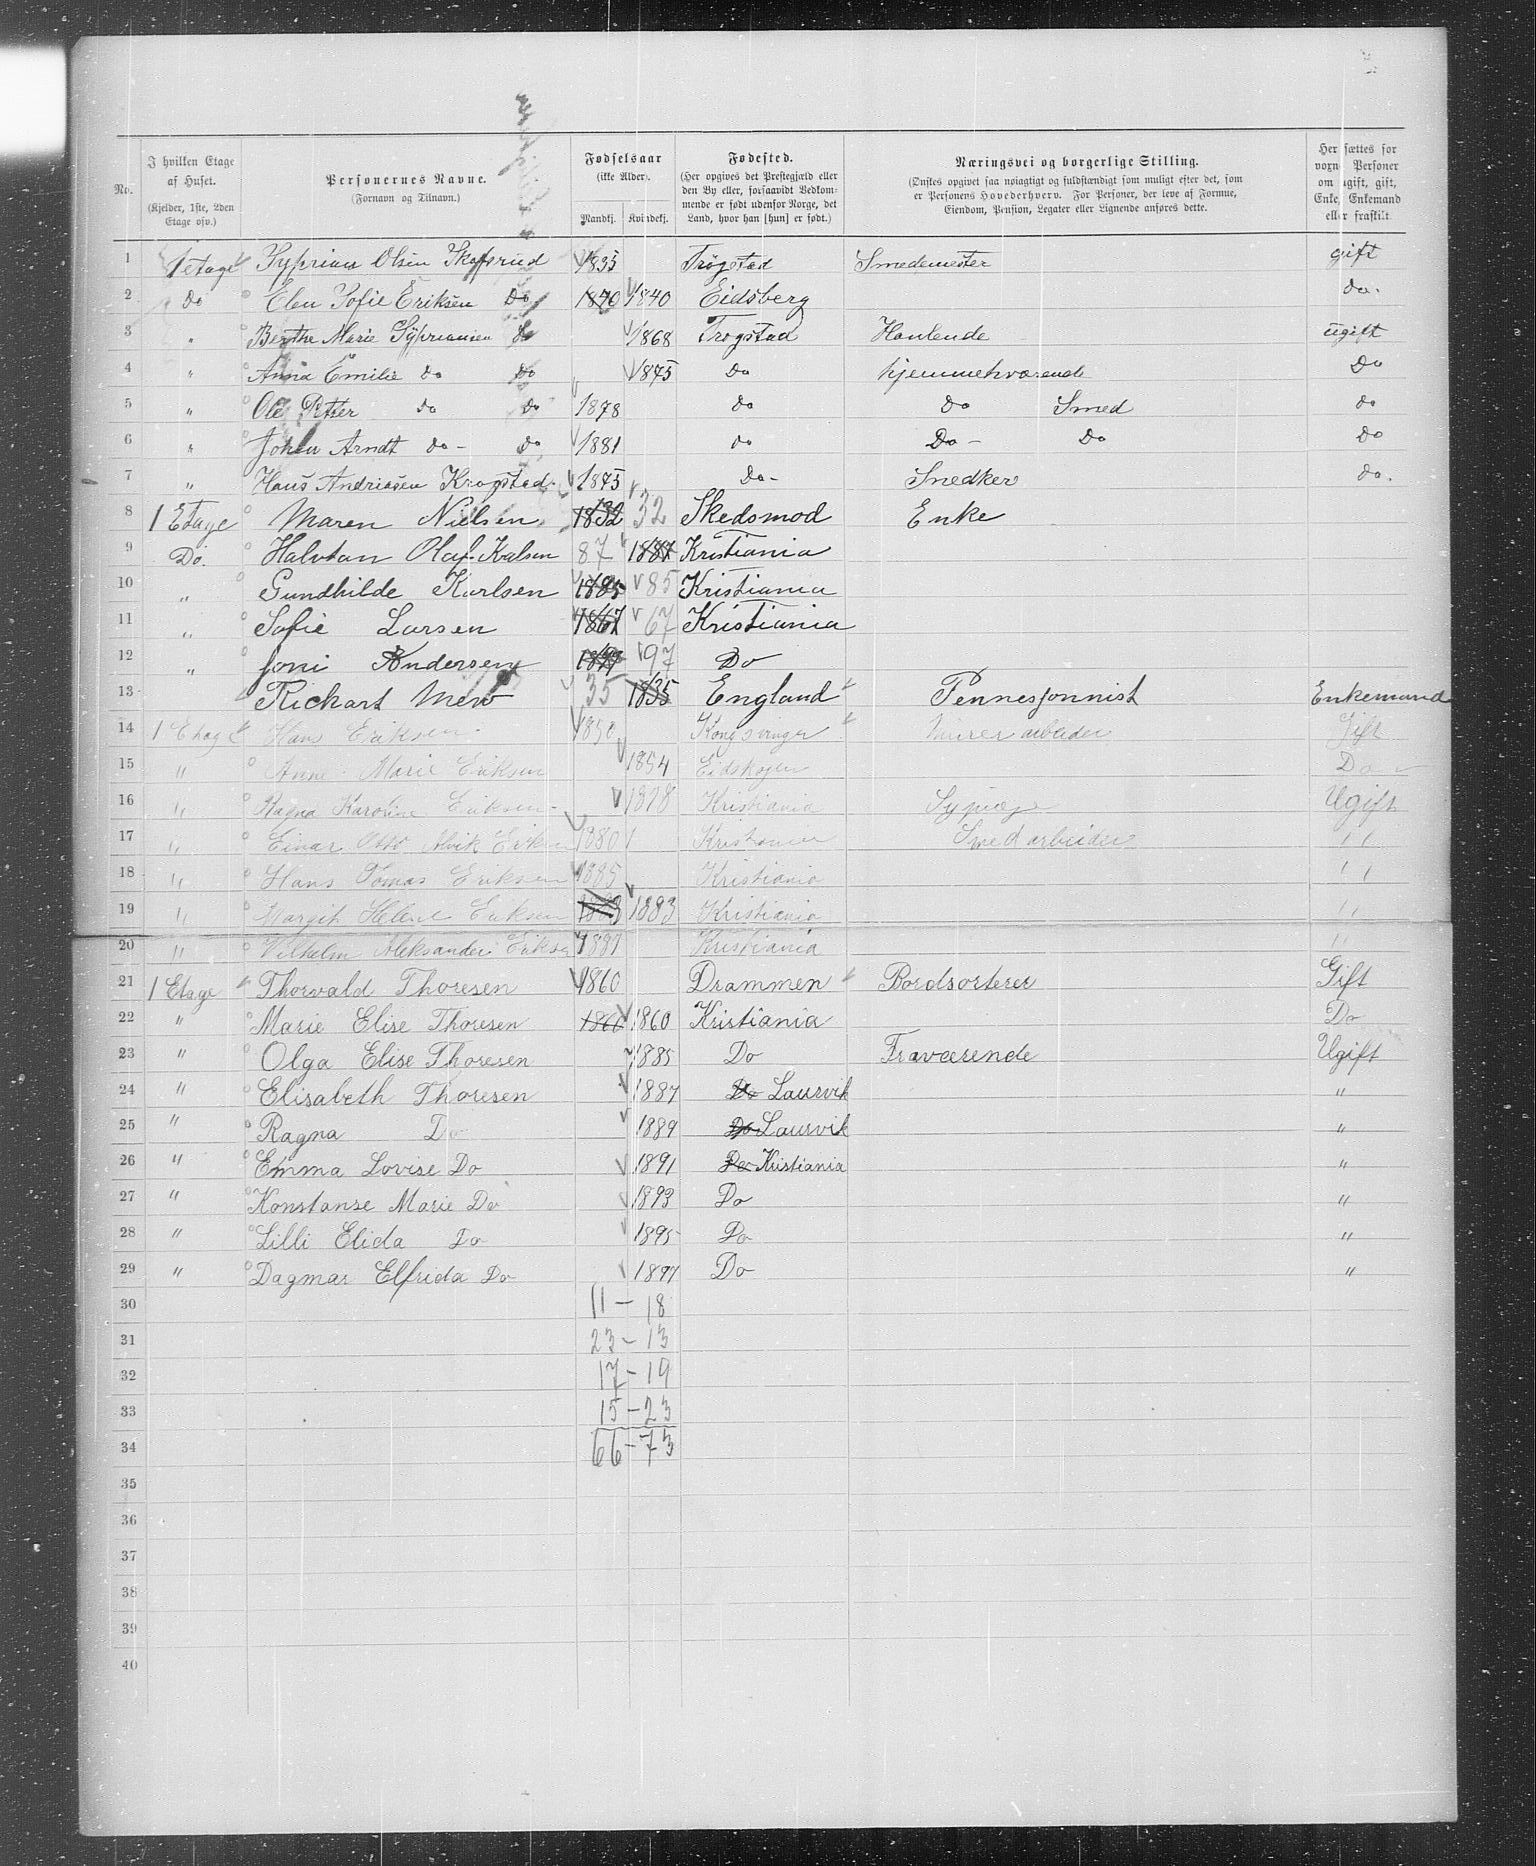 No. | I hvilken Etage af Huset. (Kjelder, 1ste, 2den Etage osv.) | Personernes Navne. (Fornavn og Tilnavn.) | Fødselsaar (ikke Alder). Mandkj. Kvindekj. | Fødested. (Her opgives det Prestegjæld eller den By eller, forsaavidt Vedkommende er født udenfor Norge, det Land, hvor han [hun] er født.) | Næringsvei og borgerlige Stilling. (Ønskes opgivet saa nøiagtigt og fuldstændigt som muligt efter det, som er Personens Hovederhverv. For Personer, der leve af Formue, Eiendom, Pension, Legater eller Lignende anføres dette. | Her sættes for voxne Personer om ugift, gift, Enke, Enkemand eller fraskilt.
1 1 etage Syprian Olsen 1835 Trøgstad Smedemester gift
2 Do Elen Sofie Eriksen Do 1840 1840 Eidsberg Do.
3 " Berthe Marie Sypriansen Do 1868 Trøgstad ugift
4 " Anna Emilie Do Do 1875 Do hjemmehværende Do
5 " Ole Petter Do Do 1878 Do Do Smed Do
6 " Johan Arndt Do - Do 1881 Do Do - Do Do
7 " Hans Andriasen Krogstad. 1875 Do - Snedker Do.
8 1 Etage Maren Nielsen 1832 32 Skedsmod Enke
9 Do. Halvtan Olaf Kalsen 87 1887 Kristiania
10 " Gundhilde Karlsen 1885 85 Kristiania
11 " Sofie Larsen 1867 67 Kristiania
12 " Joni Andersen 1897 97 Do
13 Rickart Mew 35 1835 England Pennesjonnist Enkemand
14 1 Etage Hans Eriksen 1850 Kongsvinger Murer arbeider Gift
15 " Anne Marie Eriksen 1854 Eidskogen Do
16 " Ragna Karoline Eriksen 1878 Kristiania Sypige Ugift
17 " Einar Otto Alvik Eriksen 1880 Kristiania Smed arbeider "
18 " Hans Tomas Eriksen 1885 Kristiania "
19 " Margit Helene Eriksen 1883 1883 Kristiania "
20 " Vilhelm Aleksander Eriksen 1887 Kristiania "
21 1 Etage Thorvald Thoresen 1860 Drammen Bordsorterer Gift
22 " Marie Elise Thoresen 1860 1860 Kristiania Do
23 " Olga Elise Thoresen 1885 Do Fraværende Ugift
24 " Elisabeth Thoresen 1887 Do Laurvik "
25 " Ragna Do 1889 Do Laurvik "
26 " Emma Lovise Do 1891 Do Kristiania "
27 " Konstanse Marie Do 1893 Do "
28 " Lilli Elida Do 1895 Do "
29 " Dagmar Elfrida Do 1897 Do "
30 11 - 18
31 23 - 13
32 17 - 19
33 15 - 23
34 66 - 73
35
36
37
38
39
40